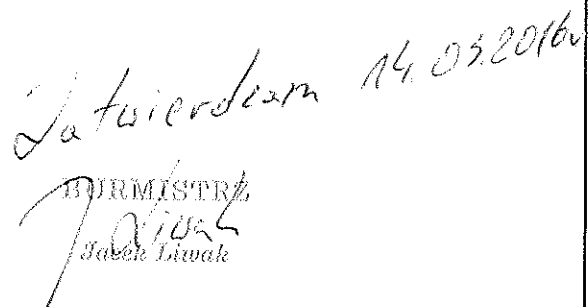 Zatwierdzam 14.03.2016r
BURMISTRZ
Jacek Liwak